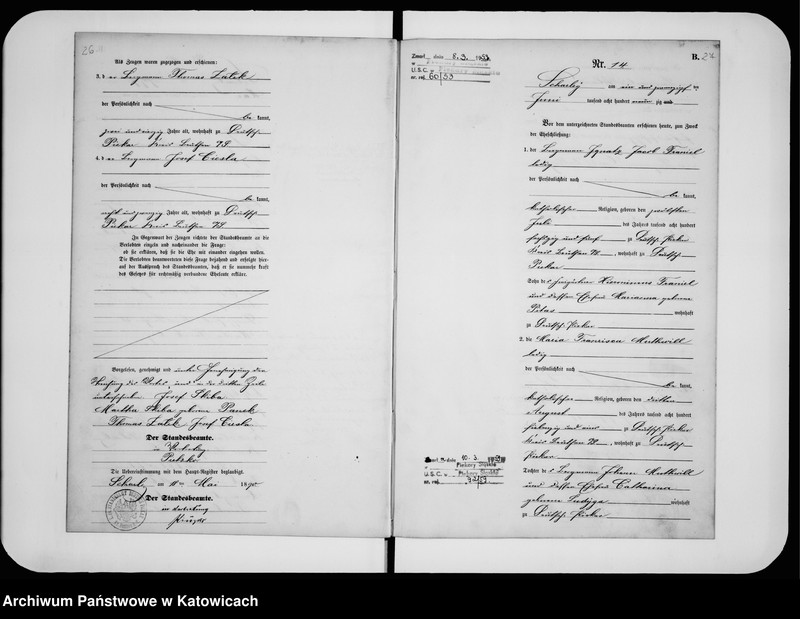 26
Als Zeugen waren zugezogen und erschienen:
3. der Bergmann Thomas Latek
der Persönlichkeit nach
be kannt,
zwei und vierzig Jahre alt, wohnhaft zu Deutsch
Piekar Kreis Beuthen
4. der Bergmann Josef Ciesla
der Persönlichkeit nach
be kannt,
Jahre alt, wohnhaft zu Deutsch
Piekar Kreis Beuthen
In Gegenwart der Zeugen richtete der Standesbeamte an die
Verlobten einzeln und nacheinander die Frage:
ob sie erklären, daß sie die Ehe mit einander eingehen wollen.
Die Verlobten beantworteten diese Frage bejahend und erfolgte hier-
auf der Ausspruch des Standesbeamten, daß er sie nunmehr kraft
des Gesetzes für rechtmäßig verbundene Eheleute erkläre.
Vorgelesen, genehmigt und unter Genehmigung der
Streichung des Wortes und in der dritten Zeile
unterschrieben Josef Skiba
Martha Skiba geborene Panek
Thomas Latek Josef Ciesla
Der Standesbeamte.
in Vertretung
Die Uebereinstimmung mit dem Haupt-Register beglaubigt.
Scharley am 11ten Mai 1890
Der Standesbeamte.
in Vertretung
Zmarł dnia 8.3. 1953
w
U.S.C. w
nr. rej. 60/53
B.
27
Nr. 14
Scharley am ein und zwanzigsten
Juni tausend acht hundert neun zig
Vor dem unterzeichneten Standesbeamten erschienen heute, zum Zweck
der Eheschließung:
1. der Bergmann Ignatz Jacob Franiel
ledig
der Persönlichkeit nach
be kannt,
katholischer Religion, geboren den
Juli des Jahres tausend acht hundert
sechszig und fünf zu Deutsch Piekar
Kreis Beuthen, wohnhaft zu Deutsch
Piekar
Sohn des Hieronimus Franiel
und dessen Ehefrau Marianna geborene
Pitas wohnhaft
zu Deutsch Piekar
2. die Maria Francisca Muthwill
ledig
der Persönlichkeit nach
be kannt,
katholischer Religion, geboren den dritten
August des Jahres tausend acht hundert
siebenzig und zu Deutsch Piekar
Kreis Beuthen, wohnhaft zu Deutsch
Piekar
Tochter des Bergmann Johann Muthwill
und dessen Ehefrau Catharina
geborene wohnhaft
zu Deutsch Piekar
Zmarł dnia 10.3. 1959
w Piekary Śląskie
U.S.C. w Piekary Śląskie
nr. rej.
Archiwum Państwowe w Katowicach